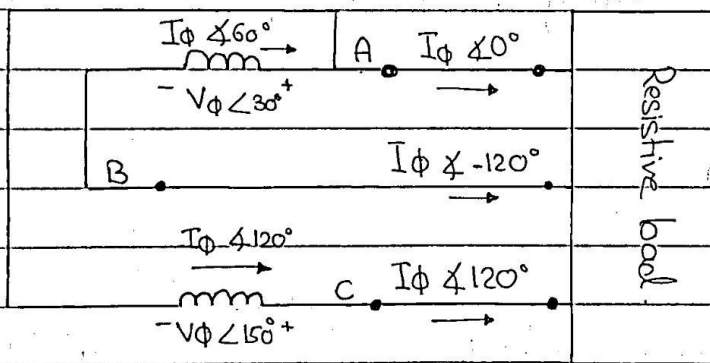 Iϕ ∡60°
A
Iϕ ∡0°
- Vϕ ∠30° +
B
Iϕ ∡-120°
Iϕ ∡120°
C
Iϕ ∡120°
- Vϕ ∠150° +
Resistive load.